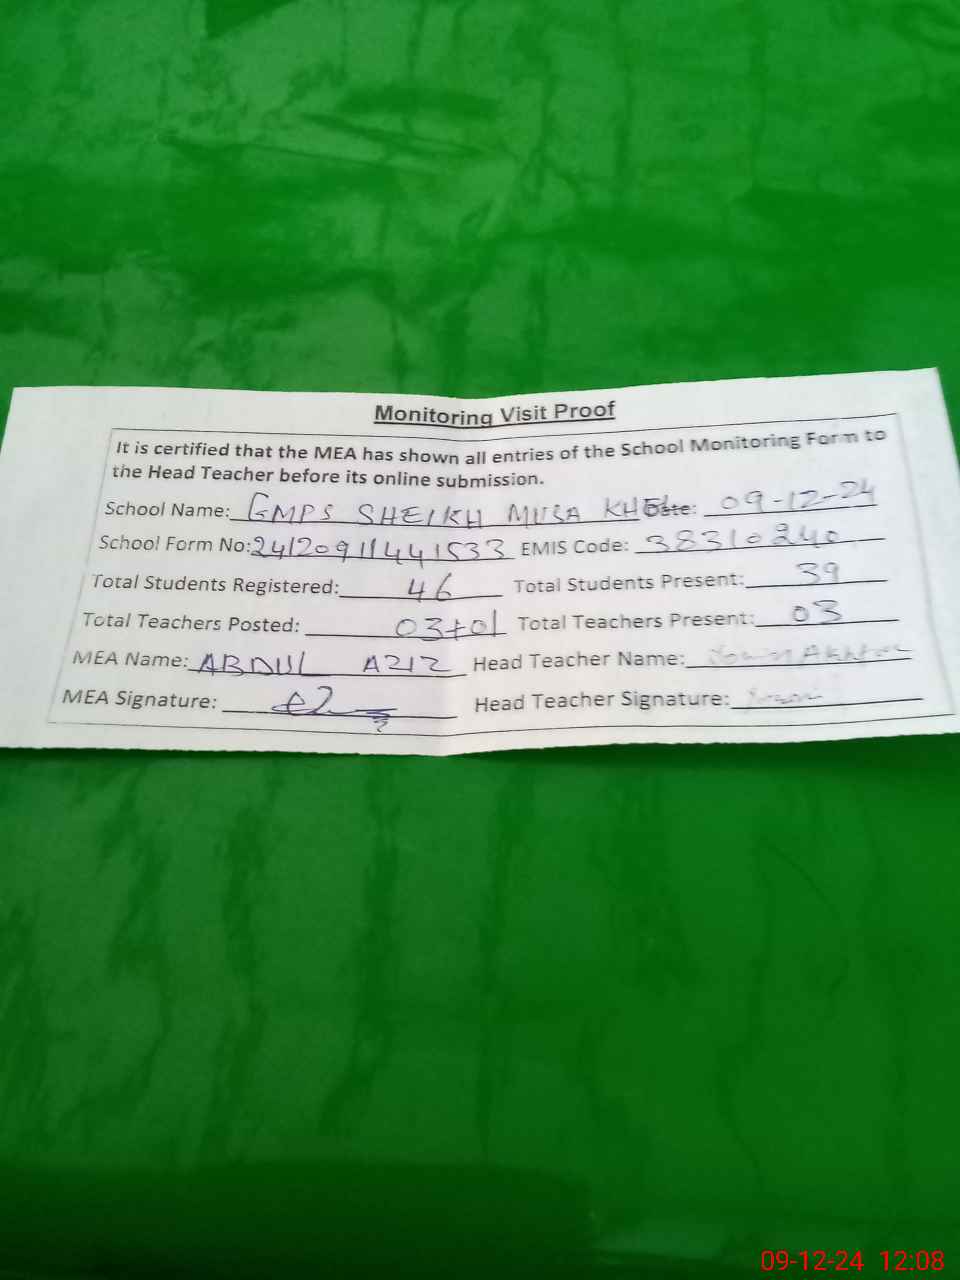 Monitoring Visit Proof
It is certified that the MEA has shown all entries of the School Monitoring Form to
the Head Teacher before its online submission.
School Name: GMPS SHEIKH MUSA KH Date: 09-12-24
School Form No: 241209114441533 EMIS Code: 38310240
Total Students Registered: 46 Total Students Present: 39
Total Teachers Posted: 03+01 Total Teachers Present: 03
MEA Name: ABDUL AZIZ Head Teacher Name: Akhtar
MEA Signature: Head Teacher Signature:
09-12-24 12:08